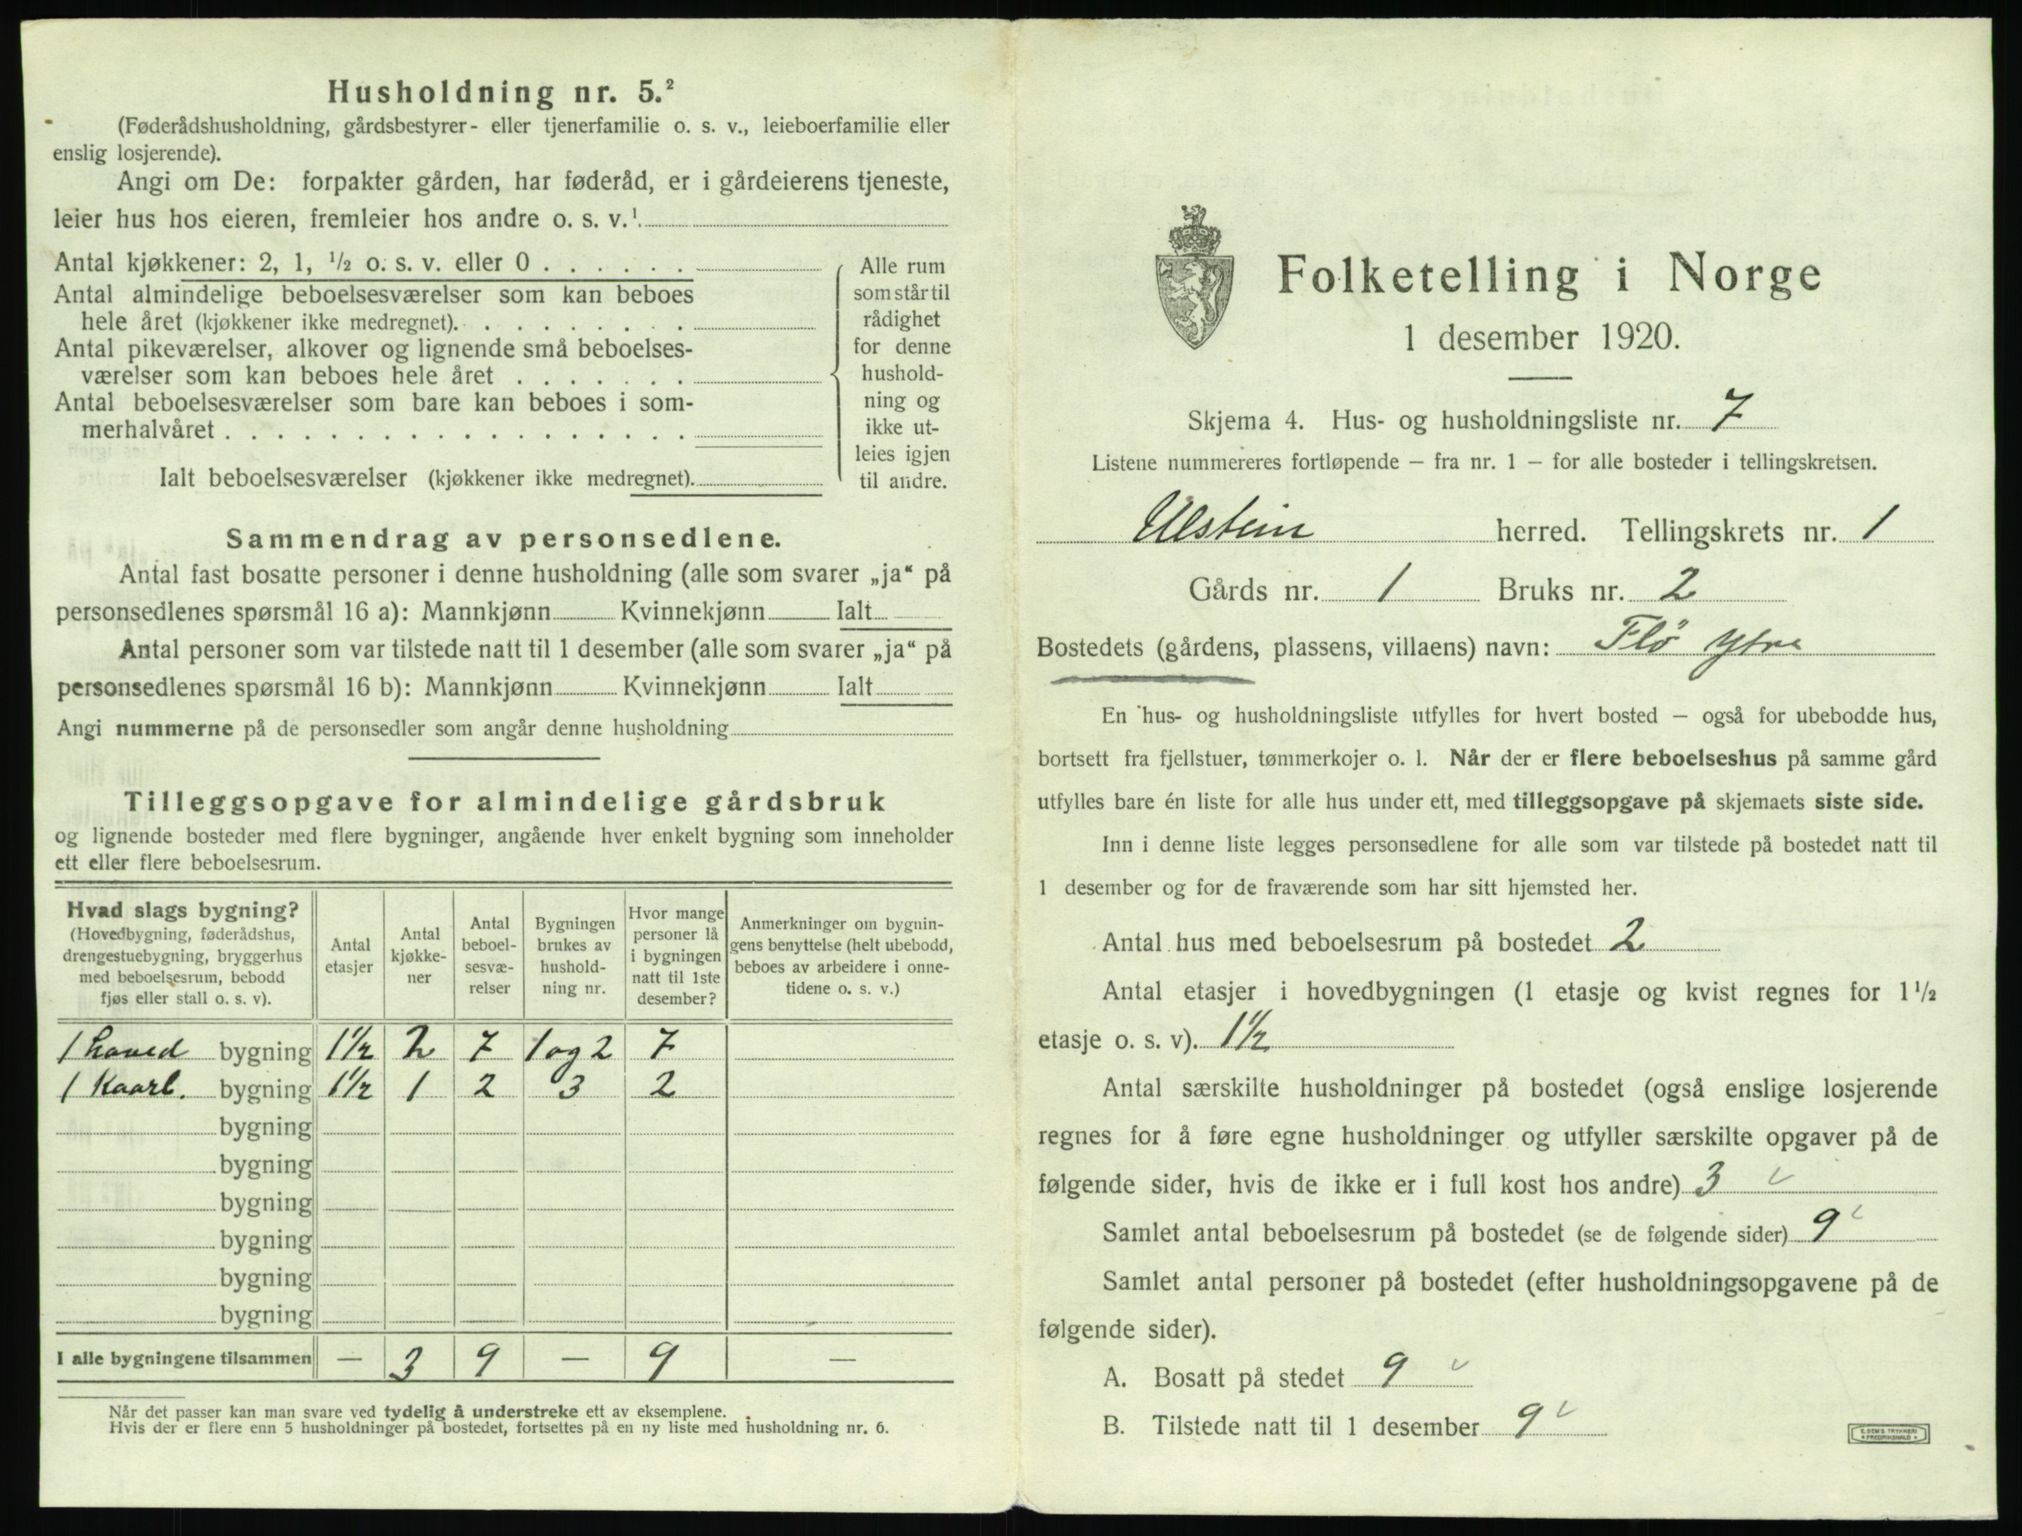 Husholdning nr. 5.²
(Føderådshusholdning, gårdsbestyrer- eller tjenerfamilie o. s. v., leieboerfamilie eller
enslig losjerende).
Angi om De: forpakter gården, har føderåd, er i gårdeierens tjeneste,
leier hus hos eieren, fremleier hos andre o. s. v.¹
Antal kjøkkener: 2, 1, ½ o. s. v. eller 0 . . . . . .
Antal almindelige beboelsesværelser som kan beboes
hele året (kjøkkener ikke medregnet). . . . . . . . .
Antal pikeværelser, alkover og lignende små beboelses-
værelser som kan beboes hele året . . . . . . .
Antal beboelsesværelser som bare kan beboes i som-
merhalvåret . . . . . . . . . . . . . . . . . .
Ialt beboelsesværelser (kjøkkener ikke medregnet).
Alle rum
som står til
rådighet
for denne
hushold-
ning og
ikke ut-
leies igjen
til andre.
Sammendrag av personsedlene.
Antal fast bosatte personer i denne husholdning (alle som svarer „ja“ på
personsedlenes spørsmål 16 a): Mannkjønn Kvinnekjønn Ialt
Antal personer som var tilstede natt til 1 desember (alle som svarer „ja“ på
personsedlenes spørsmål 16 b): Mannkjønn Kvinnekjønn Ialt
Angi nummerne på de personsedler som angår denne husholdning
Tilleggsopgave for almindelige gårdsbruk
og lignende bosteder med flere bygninger, angående hver enkelt bygning som inneholder
ett eller flere beboelsesrum.
Hvad slags bygning?
(Hovedbygning, føderådshus,
drengestuebygning, bryggerhus
med beboelsesrum, bebodd
fjøs eller stall o. s. v).
Antal
etasjer
Antal
kjøkke-
ner
Antal
beboel-
sesvæ-
relser
Bygningen
brukes av
hushold-
ning nr.
Hvor mange
personer lå
i bygningen
natt til 1ste
desember?
Anmerkninger om bygnin-
gens benyttelse (helt ubebodd,
beboes av arbeidere i onne-
tidene o. s. v.)
1 hoved bygning 1½ 2 7 1 og 2 7
1 Kaarb. bygning 1½ 1 2 3 2
bygning
bygning
bygning
bygning
bygning
bygning
I alle bygningene tilsammen — 3 9 — 9 —
Når det passer kan man svare ved tydelig å understreke ett av eksemplene.
Hvis der er flere enn 5 husholdninger på bostedet, fortsettes på en ny liste med husholdning nr. 6.
Folketelling i Norge
1 desember 1920.
Skjema 4. Hus- og husholdningsliste nr. 7
Listene nummereres fortløpende – fra nr. 1 – for alle bosteder i tellingskretsen.
Ulstein herred. Tellingskrets nr. 1
Gårds nr. 1 Bruks nr. 2
Bostedets (gårdens, plassens, villaens) navn: Flö ytre
En hus- og husholdningsliste utfylles for hvert bosted – også for ubebodde hus,
bortsett fra fjellstuer, tømmerkojer o. l. Når der er flere beboelseshus på samme gård
utfylles bare én liste for alle hus under ett, med tilleggsopgave på skjemaets siste side.
Inn i denne liste legges personsedlene for alle som var tilstede på bostedet natt til
1 desember og for de fraværende som har sitt hjemsted her.
Antal hus med beboelsesrum på bostedet 2
Antal etasjer i hovedbygningen (1 etasje og kvist regnes for 1½
etasje o. s. v). 1½
Antal særskilte husholdninger på bostedet (også enslige losjerende
regnes for å føre egne husholdninger og utfyller særskilte opgaver på de
følgende sider, hvis de ikke er i full kost hos andre) 3
Samlet antal beboelsesrum på bostedet (se de følgende sider) 9
Samlet antal personer på bostedet (efter husholdningsopgavene på de
følgende sider).
A. Bosatt på stedet 9
B. Tilstede natt til 1 desember 9
E. SEM'S TRYKKERI
FREDRIKSHALD